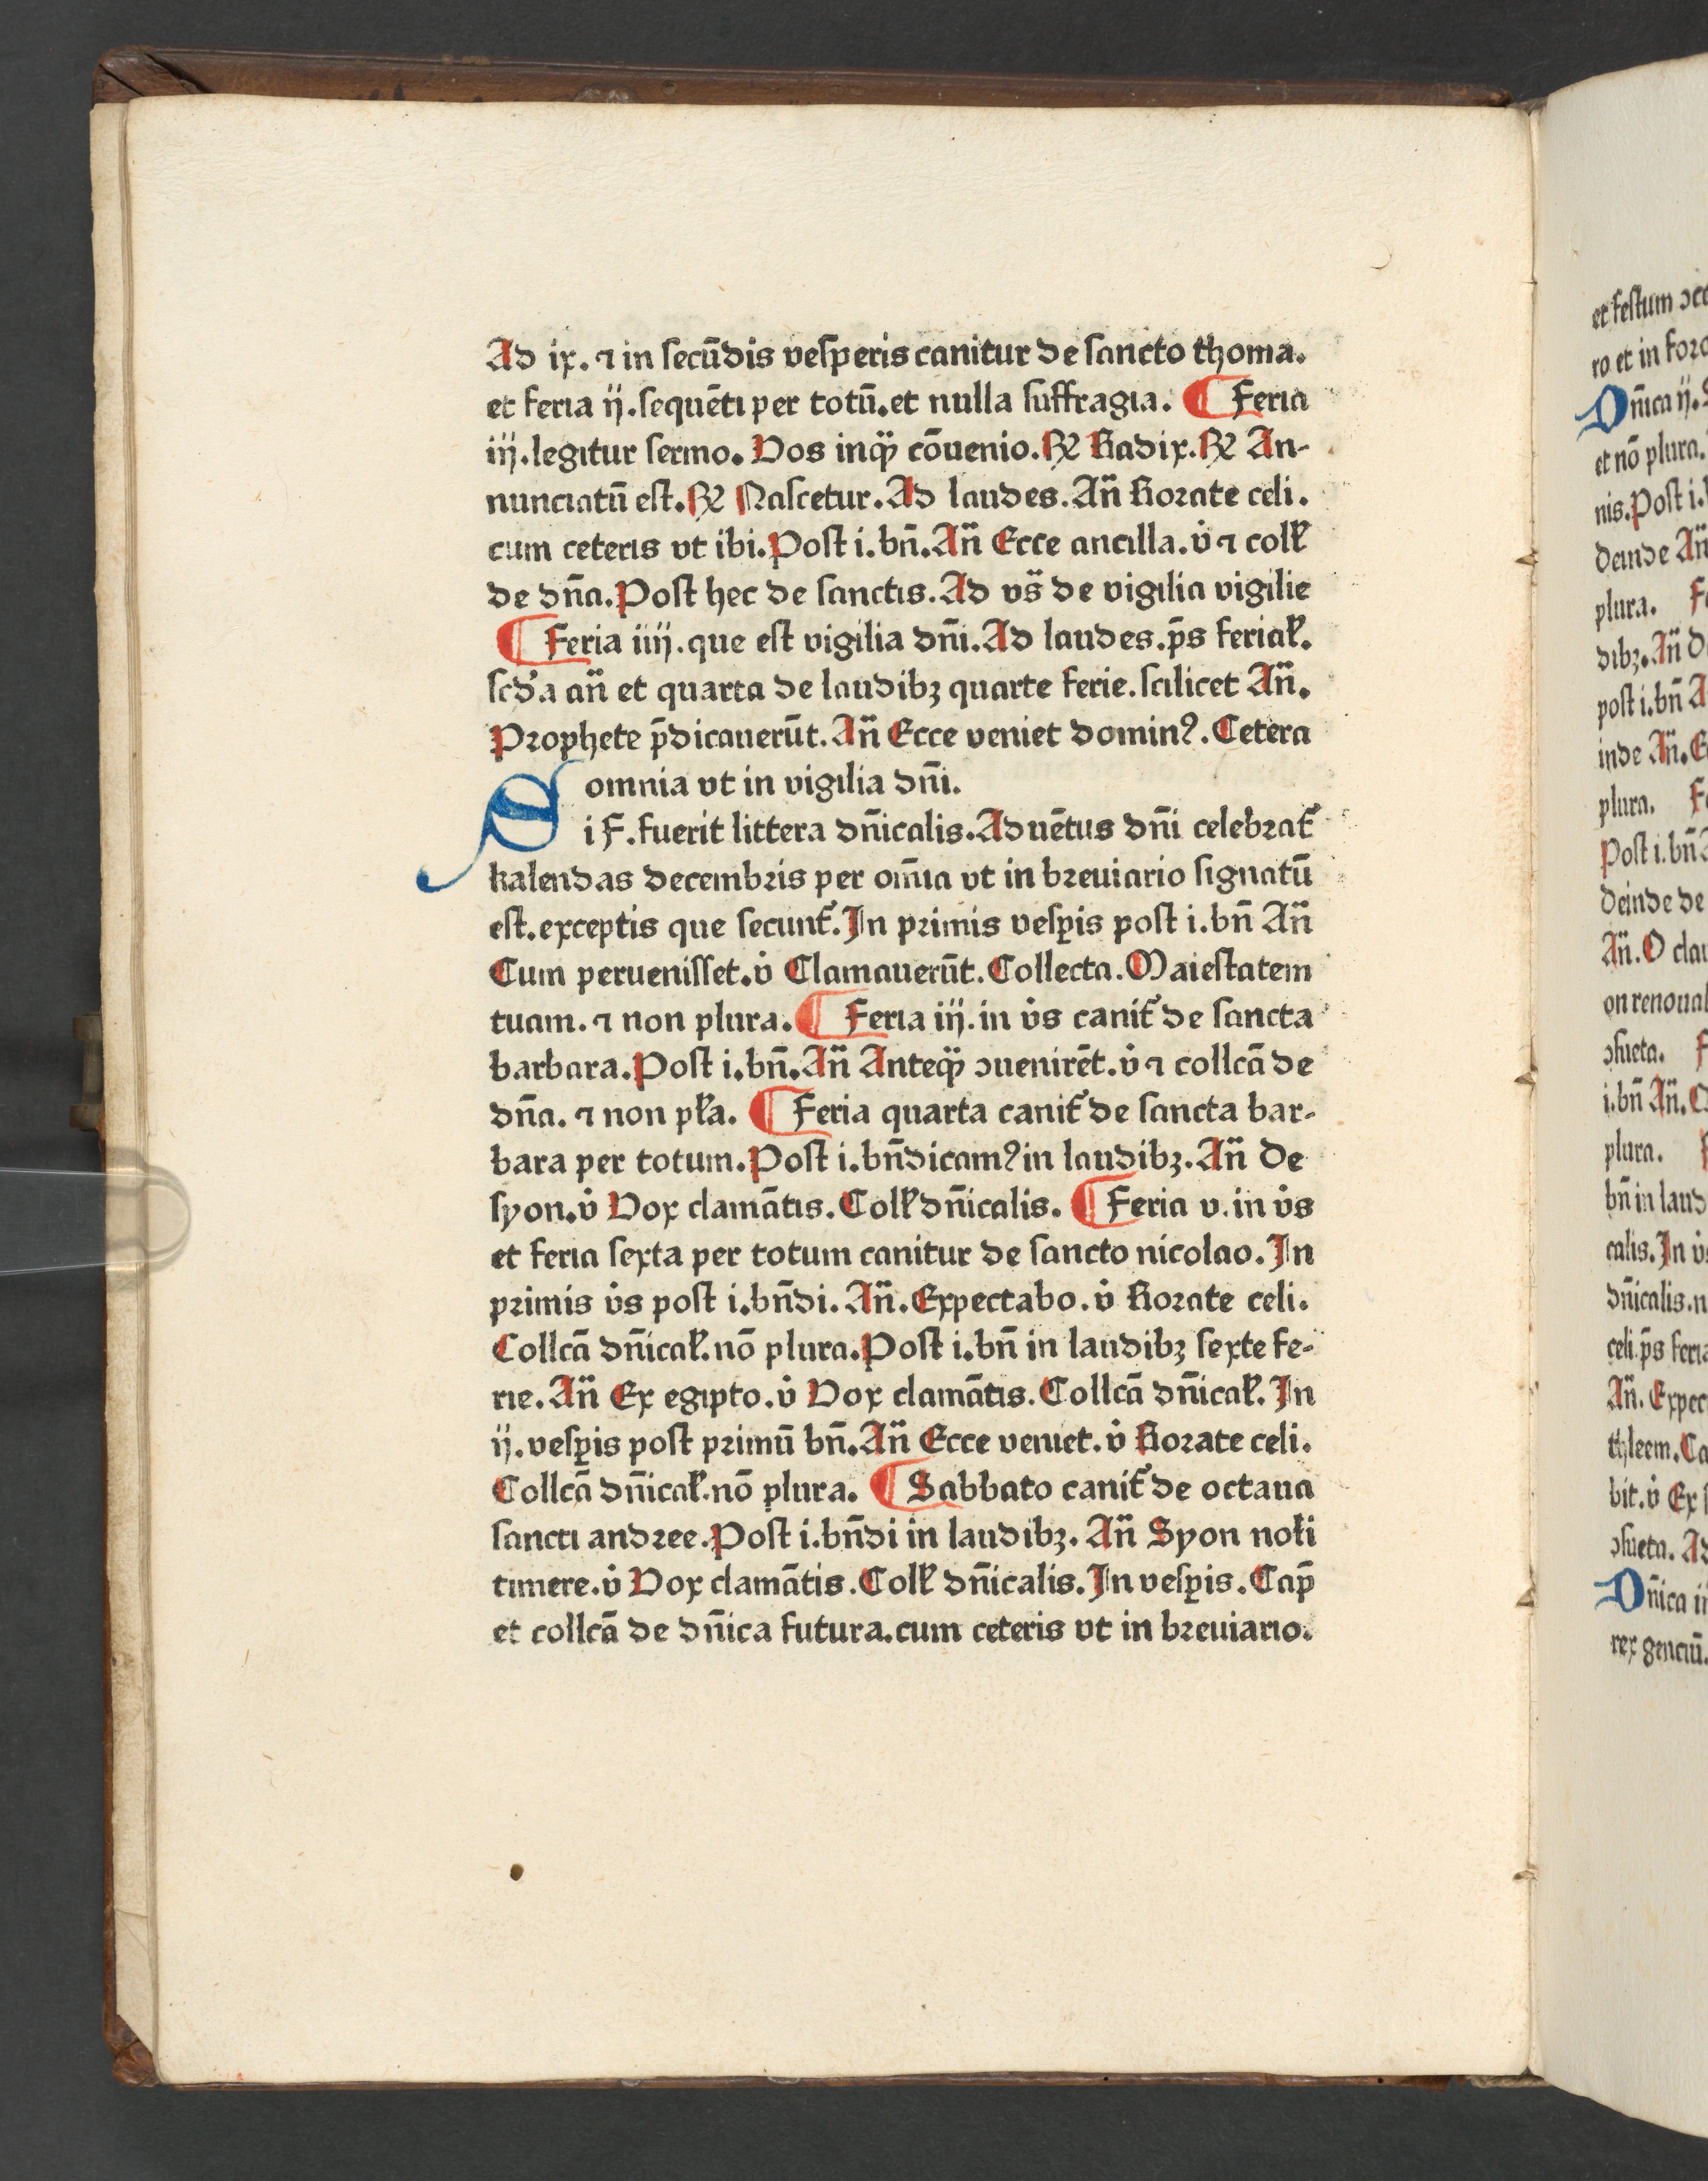 Ad ix. ⁊ in secūdis vesperis canitur de sancto thoma.
et feria ij. sequēti per totū. et nulla suffragia. ¶ Feria
iij. legitur sermo. Vos inqȝ cōuenio. ℟ Radix. ℟ An-
nunciatū est. ℟ Nascetur. Ad laudes. An̄ Rorate celi.
cum ceteris vt ibi. Post i. bn̄. An̄ Ecce ancilla. v̇ ⁊ coll̓
de dn̄a. Post hec de sanctis. Ad vs̄ de vigilia vigilie
¶ Feria iiij. que est vigilia dn̄i. Ad laudes. p̄s ferial̓.
scd̓a an̄ et quarta de laudibȝ quarte ferie. scilicet An̄.
Prophete p̄dicauerūt. An̄ Ecce veniet dominꝰ. Cetera
omnia vt in vigilia dn̄i.
Si F. fuerit littera dn̄icalis. Aduētus dn̄i celebrat̓
kalendas decembris per om̄ia vt in breuiario signatū
est. exceptis que secunt̓. In primis vesp̱is post i. bn̄ An̄
Cum peruenisset. v̇ Clamauerūt. Collecta. Maiestatem
tuam. ⁊ non plura. ¶ Feria iij. in v̇s canit̓ de sancta
barbara. Post i. bn̄. An̄ Anteqȝ ↄuenirēt. v̇ ⁊ collcā de
dn̄a. ⁊ non pl̓a. ¶ Feria quarta canit̓ de sancta bar-
bara per totum. Post i. bn̄dicamꝰ in laudibȝ. An̄ De
syon. v̇ Vox clamātis. Coll̓ dn̄icalis. ¶ Feria v. in v̇s
et feria sexta per totum canitur de sancto nicolao. In
primis v̇s post i. bn̄di. An̄. Expectabo. v̇ Rorate celi.
Collcā dn̄ical̓. nō plura. Post i. bn̄ in laudibȝ sexte fe-
rie. An̄ Ex egipto. v̇ Vox clamātis. Collcā dn̄ical̓. In
ij. vesp̱is post primū bn̄. An̄ Ecce veniet. v̇ Rorate celi.
Collcā dn̄ical̓. nō plura. ¶ Sabbato canit̓ de octaua
sancti andree. Post i. bn̄di in laudibȝ. An̄ Syon nol̓i
timere. v̇ Vox clamātis. Coll̓ dn̄icalis. In vesp̱is. Cap̄
et collcā de dn̄ica futura. cum ceteris vt in breuiario.
et festum
ro et in
Dn̄ica ij.
et nō plura.
nis. Post i.
deinde An̄
plura.
dibȝ. An̄
post i. bn̄
inde An̄.
plura.
Post i. bn̄
deinde de
An̄. O
on
ↄsueta.
i. bn̄ An̄.
plura.
bn̄ in
calis. In
dn̄icalis.
celi. p̄s
An̄.
thleem.
bit. v̇ Ex
ↄsueta.
Dn̄ica
rex genciū.